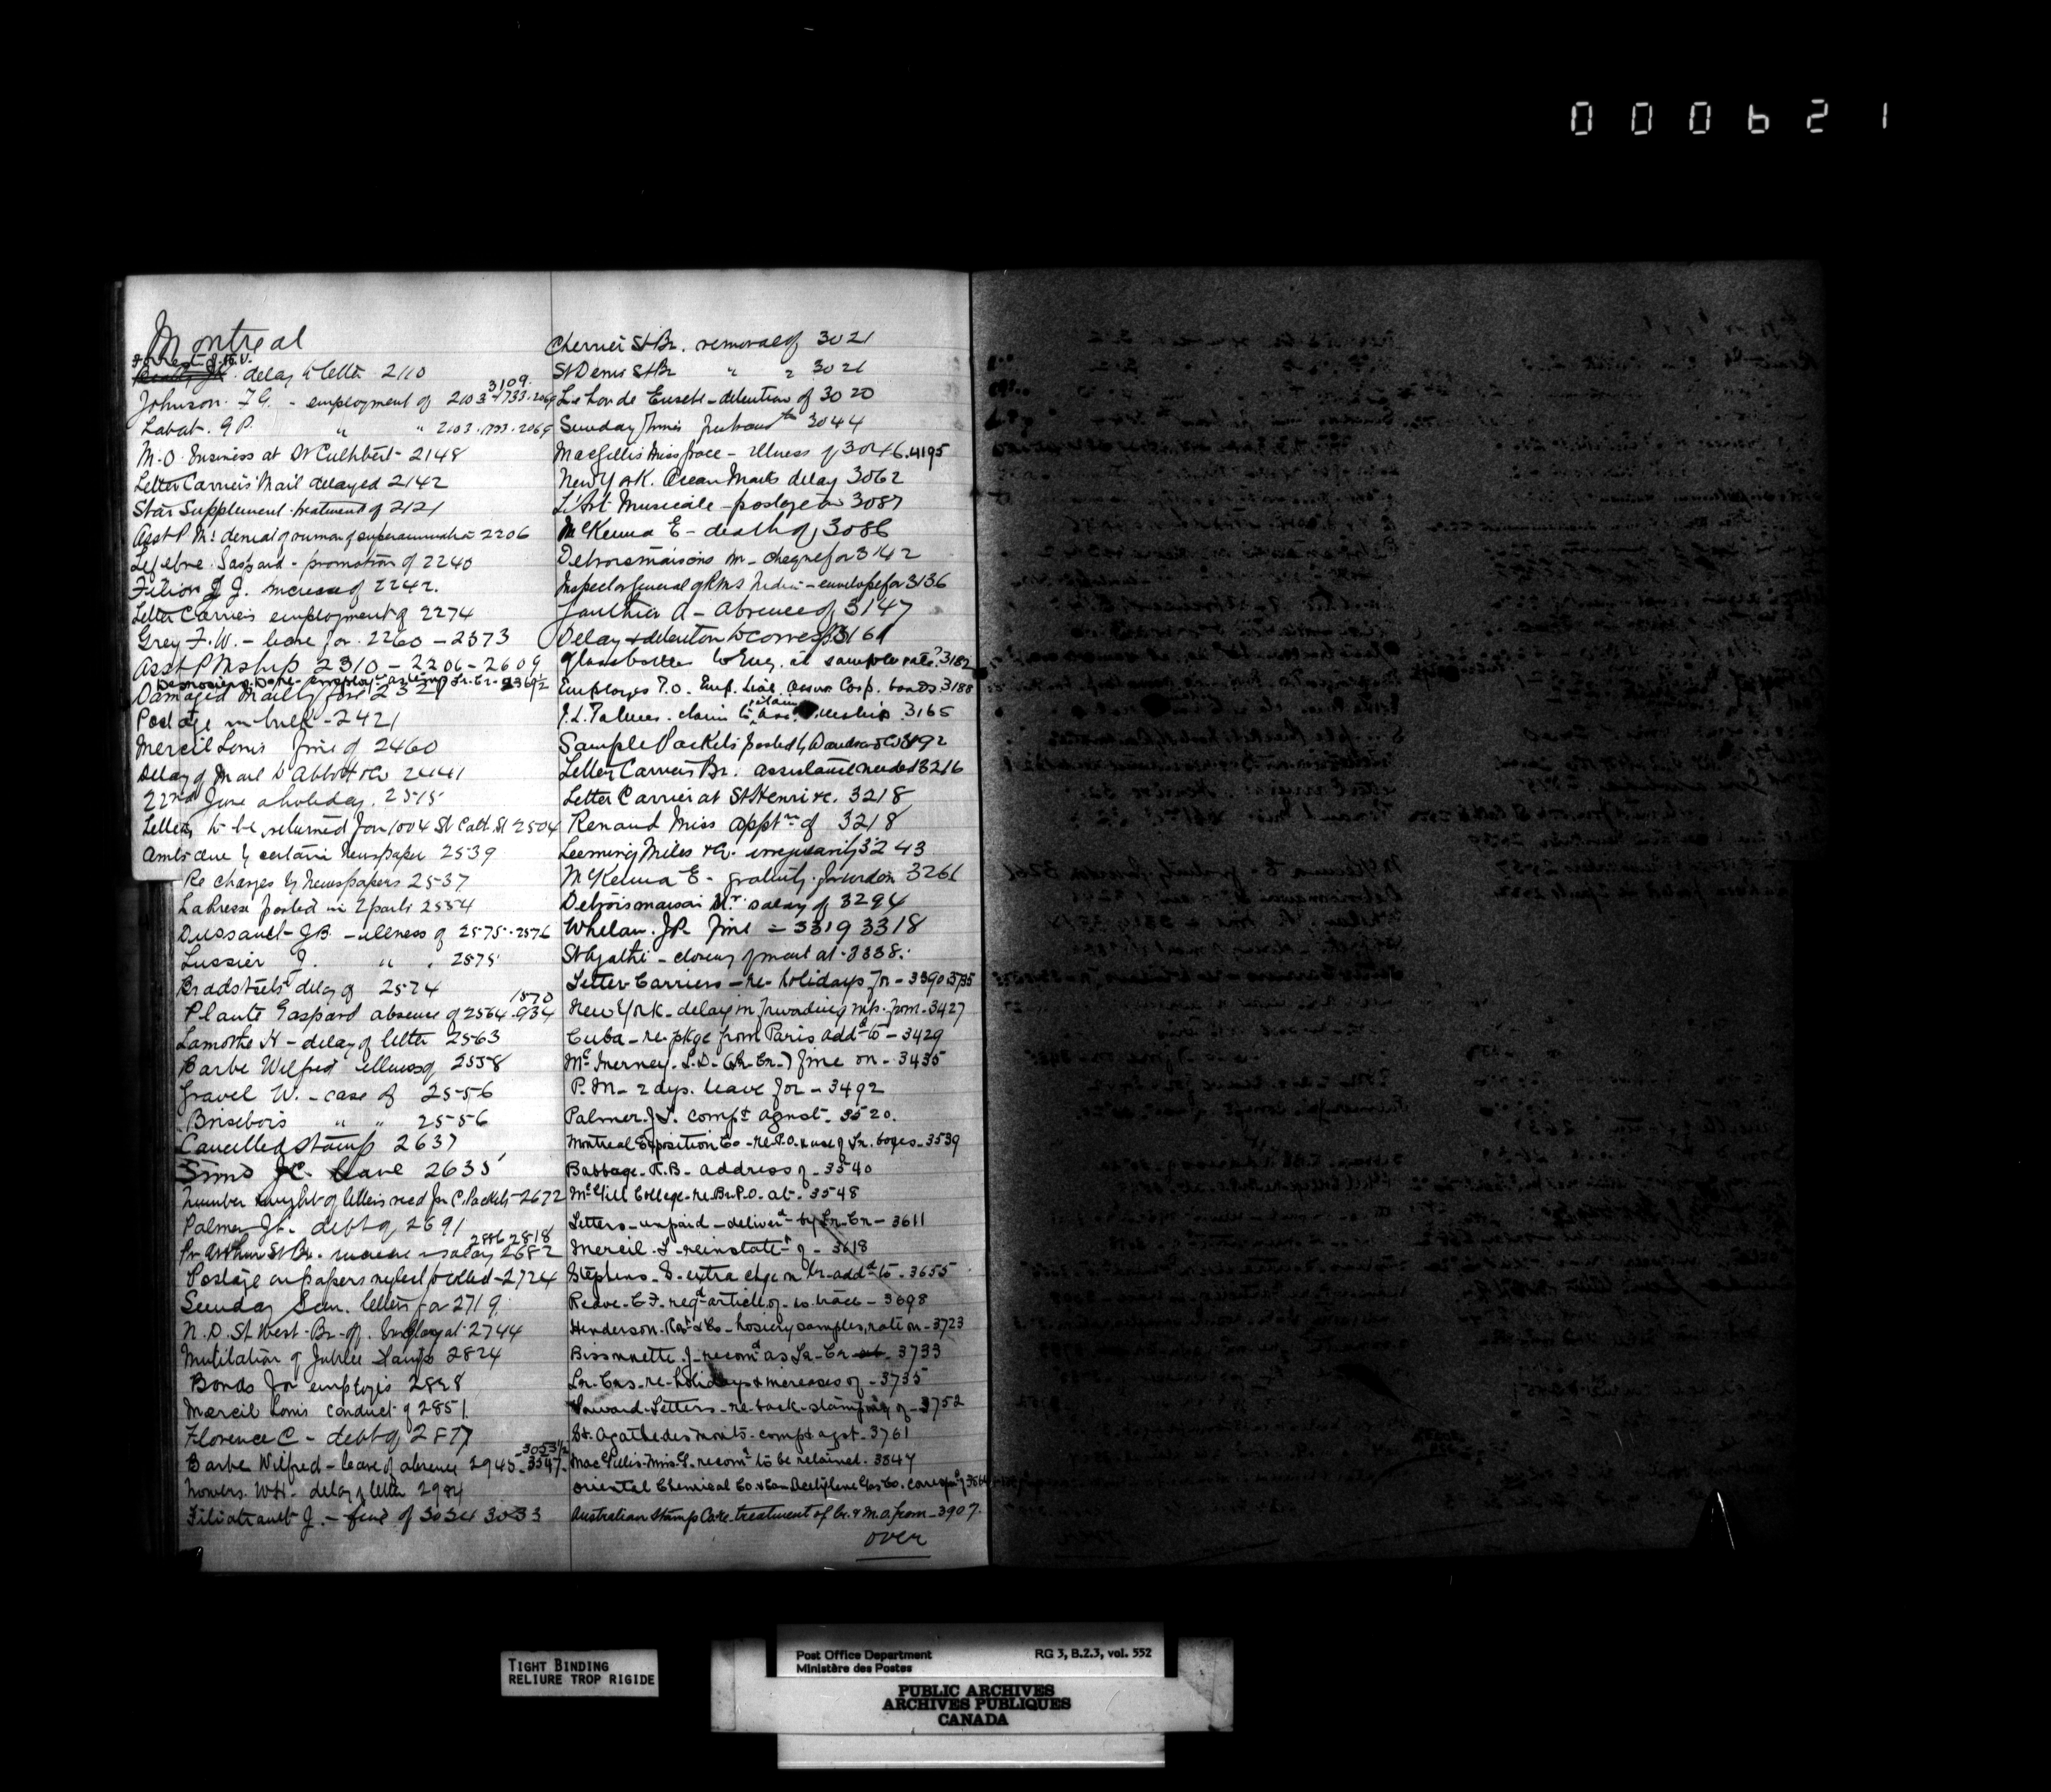 000621
Montreal
Forrest J. H. V.
delay to letter 2110
3109
Johnson. F. G. - employment of 2103-1733-2069
Labat. G P. " " 2103.1733.2069
M. O. Business at St Cuthbert 2148
Letter Carriers Mail delayed 2142
Star Supplement treatment of 2121
Asst P. M. denial of rumor of superannuation 2206
Lefebvre Gaspard - promotion of 2240
Filion J. J. increase of 2242.
Letter Carriers employment of 2274
Grey F. W. - leave for 2260 - 2373
Asst P Mship 2310 - 2206 - 2609
Damaged Mail 2321
Postage in bulk - 2421
Mercil Louis fine of 2460
Delay of Mail to Abbott & Co 2441
22nd June a holiday. 2515
Letters to be returned for 1004 St Cath. St 2504
Amts due by certain Newspaper 2539
Re charges by Newspapers 2537
La Presse posted in 2 parts 2554
Dussault J B. - illness of 2575-2576
Lussier J. " . 2575
Bradstreets delay of 2574
1570
Plante Gaspard absence of 2564.
Lamothe H - delay of letter 2563
Barbe Wilfred illness of 2558
Gravel W. - case of 2556
Brisebois " " 2556
Cancelled stamp 2637
Sims J C. leave 2635
Number & weight of letters recd for C. Packets - 2672
Palmer J L. debt of 2691
2886 2818
Pr Arthur St Br. increase salary 2682
Postage on papers neglect to collect - 2724
Sunday Sun. letters for 2719
N. D. St West - Br - of. at 2744
Mutilation of Jubilee stamps 2824
Bonds for employés 2828
Mercil Louis conduct of 2851
Florence C - debt of 2877
3053½
Barbe Wilfred - leave of absence 2945 - 3547
Nowers. W H. delay of letter 2984
Filiatrault J. - fine of 3034 3033
Cherrier St Br. removal of 3021
St Denis St Br " " 3021
Lalonde Eusebe - detention of 3020
Sunday Times 3044
MacGillis Miss Grace - Illness of 3046. 4195
New York. Ocean Mails delay 3062
L'Art Musicale - postage on 3087
McKenna E - death of 3086
Detroismaisons M - cheque for 3142
Inspector General of RMS India - envelope for 3136
Gauthier A - absence of 3147
Delay & detention to corresp 3161
Glass bottles to Eng. at sample rate? 3182
Employés P.O. Emp. Liab. Assur Corp. bonds 3188
J. L. Palmer. claim to 3165
Sample Packets posted by Davidson & Co 3192
Letter Carriers Br. assistance needed 3216
Letter Carrier at St Henri &c. 3218
Renaud Miss apptmt of 3218
Leeming Miles & Co. irregularity 3243
McKenna E - gratuity for widow 3261
Detroismaison Mr. salary of 3294
Whelan. J P. fine - 3319 3318
St Agathe - closing of mail at - 3338.
Letter Carriers - re - holidays for - 3390 3735
New York - delay in forwarding nps. from - 3427
Cuba - re pkge from Paris addd to - 3429
McInerney. L. D. (Lr. Cr.) fine on - 3435
P. M - 2 dys. leave for - 3492
Palmer. J L. compt agnst - 3520.
Montreal Exposition Co - re P.O. & use of Lr. boxes - 3539
Babbage. R. B - address of - 3540
McGill College - re Br. P.O. at - 3548
Letters - unpaid - deliverd by Lr. Cr - 3611
Mercil. L - reinstatet of - 3618
Stephens. S - extra chge on lr. addd to - 3655
Reave. C F. regd article of - to trace - 3698
Henderson. Robt & Co - hosiery samples, rate on - 3723
Bissonnette. J - recomd as Lr. Cr - 3733
Lr. Crs. re holidays & increases of - 3735
Forward Letters - re back-stamping of - 3752
St. Agathe des Monts - compt agst - 3761
MacGillis. Miss G. recomd to be retained - 3847
Oriental Chemical Co. & Can Acetylene Gas Co.
Australian Stamp Co. re treatment of lr. & M.O. from - 3907.
over
TIGHT BINDING
RELIURE TROP RIGIDE
Post Office Department RG 3, B.2.3, vol. 552
Ministère des Postes
PUBLIC ARCHIVES
ARCHIVES PUBLIQUES
CANADA